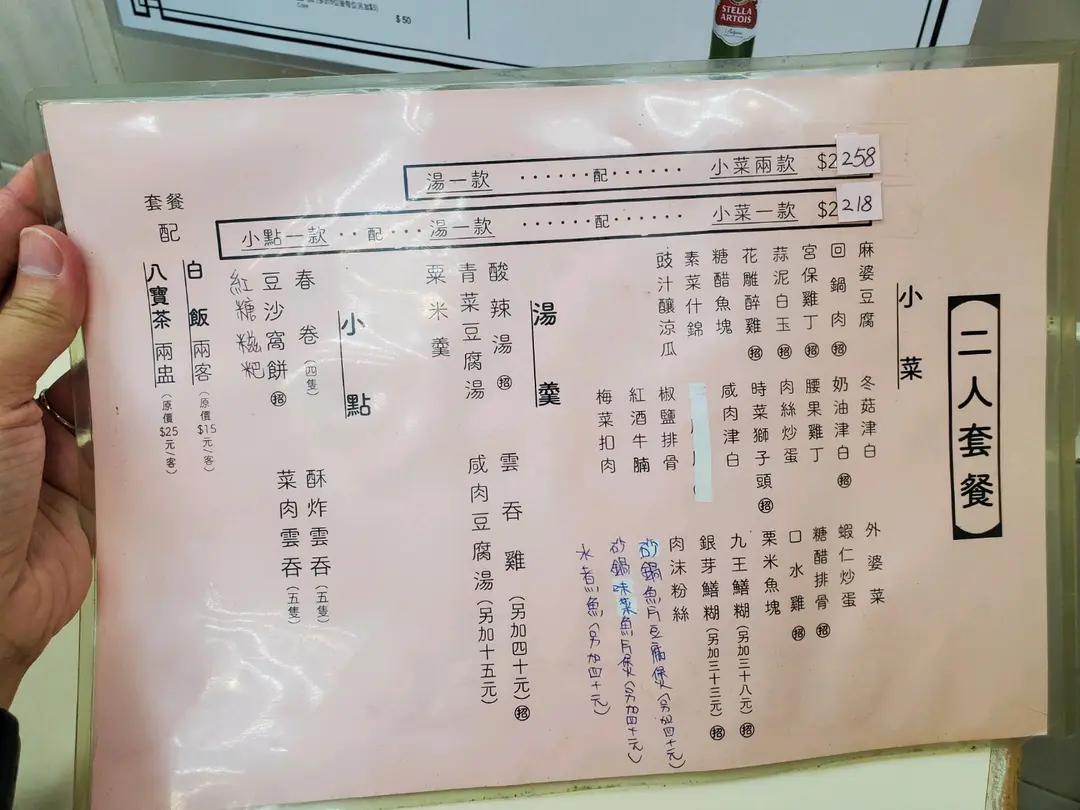 $50
STELLA
ARTOIS
二人套餐
湯一款 ······配······ 小菜兩款 $2258
小點一款 ··配··· 湯一款 ······配······ 小菜一款 $2218
小菜
麻婆豆腐
回鍋肉 招
宮保雞丁 招
蒜泥白玉 招
花雕醉雞 招
糖醋魚塊
素菜什錦
豉汁釀涼瓜
冬菇津白
奶油津白 招
腰果雞丁
肉絲炒蛋
時菜獅子頭 招
咸肉津白
椒鹽排骨
紅酒牛腩
梅菜扣肉
外婆菜
蝦仁炒蛋
糖醋排骨 招
口水雞 招
粟米魚塊
九王鱔糊(另加三十八元) 招
銀芽鱔糊(另加三十三元) 招
肉沫粉絲
砂鍋魚片豆腐煲(另加四十元)
砂鍋味菜魚片煲(另加四十元)
水煮魚(另加四十元)
湯羹
酸辣湯 招
青菜豆腐湯
粟米羹
雲吞雞(另加四十元) 招
咸肉豆腐湯(另加十五元)
小點
春卷(四隻)
豆沙窩餅 招
紅糖糍粑
酥炸雲吞(五隻)
菜肉雲吞(五隻)
套餐
配
白飯兩客(原價$15元/客)
八寶茶兩盅(原價$25元/客)